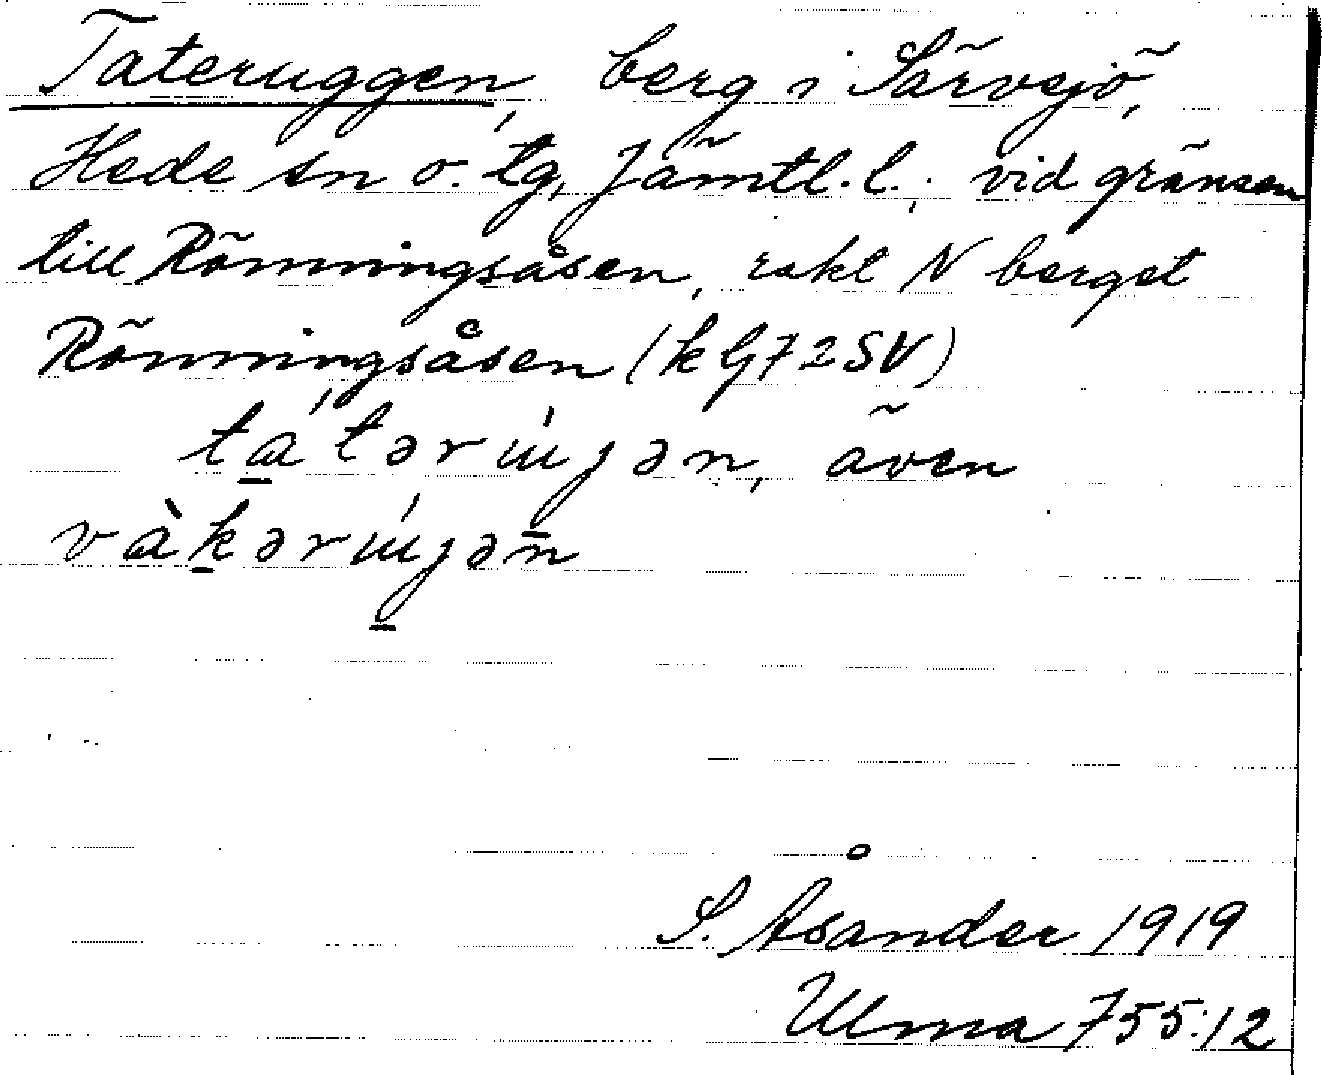 Tateruggen, berg i Särvsjö,
Hede sn o. tg, Jämtl. l., vid gränsen
till Rönningsåsen, rakt N berget
Rönningsåsen (k G72SV)
även
S. Åsander 1919
Ulma 755:12